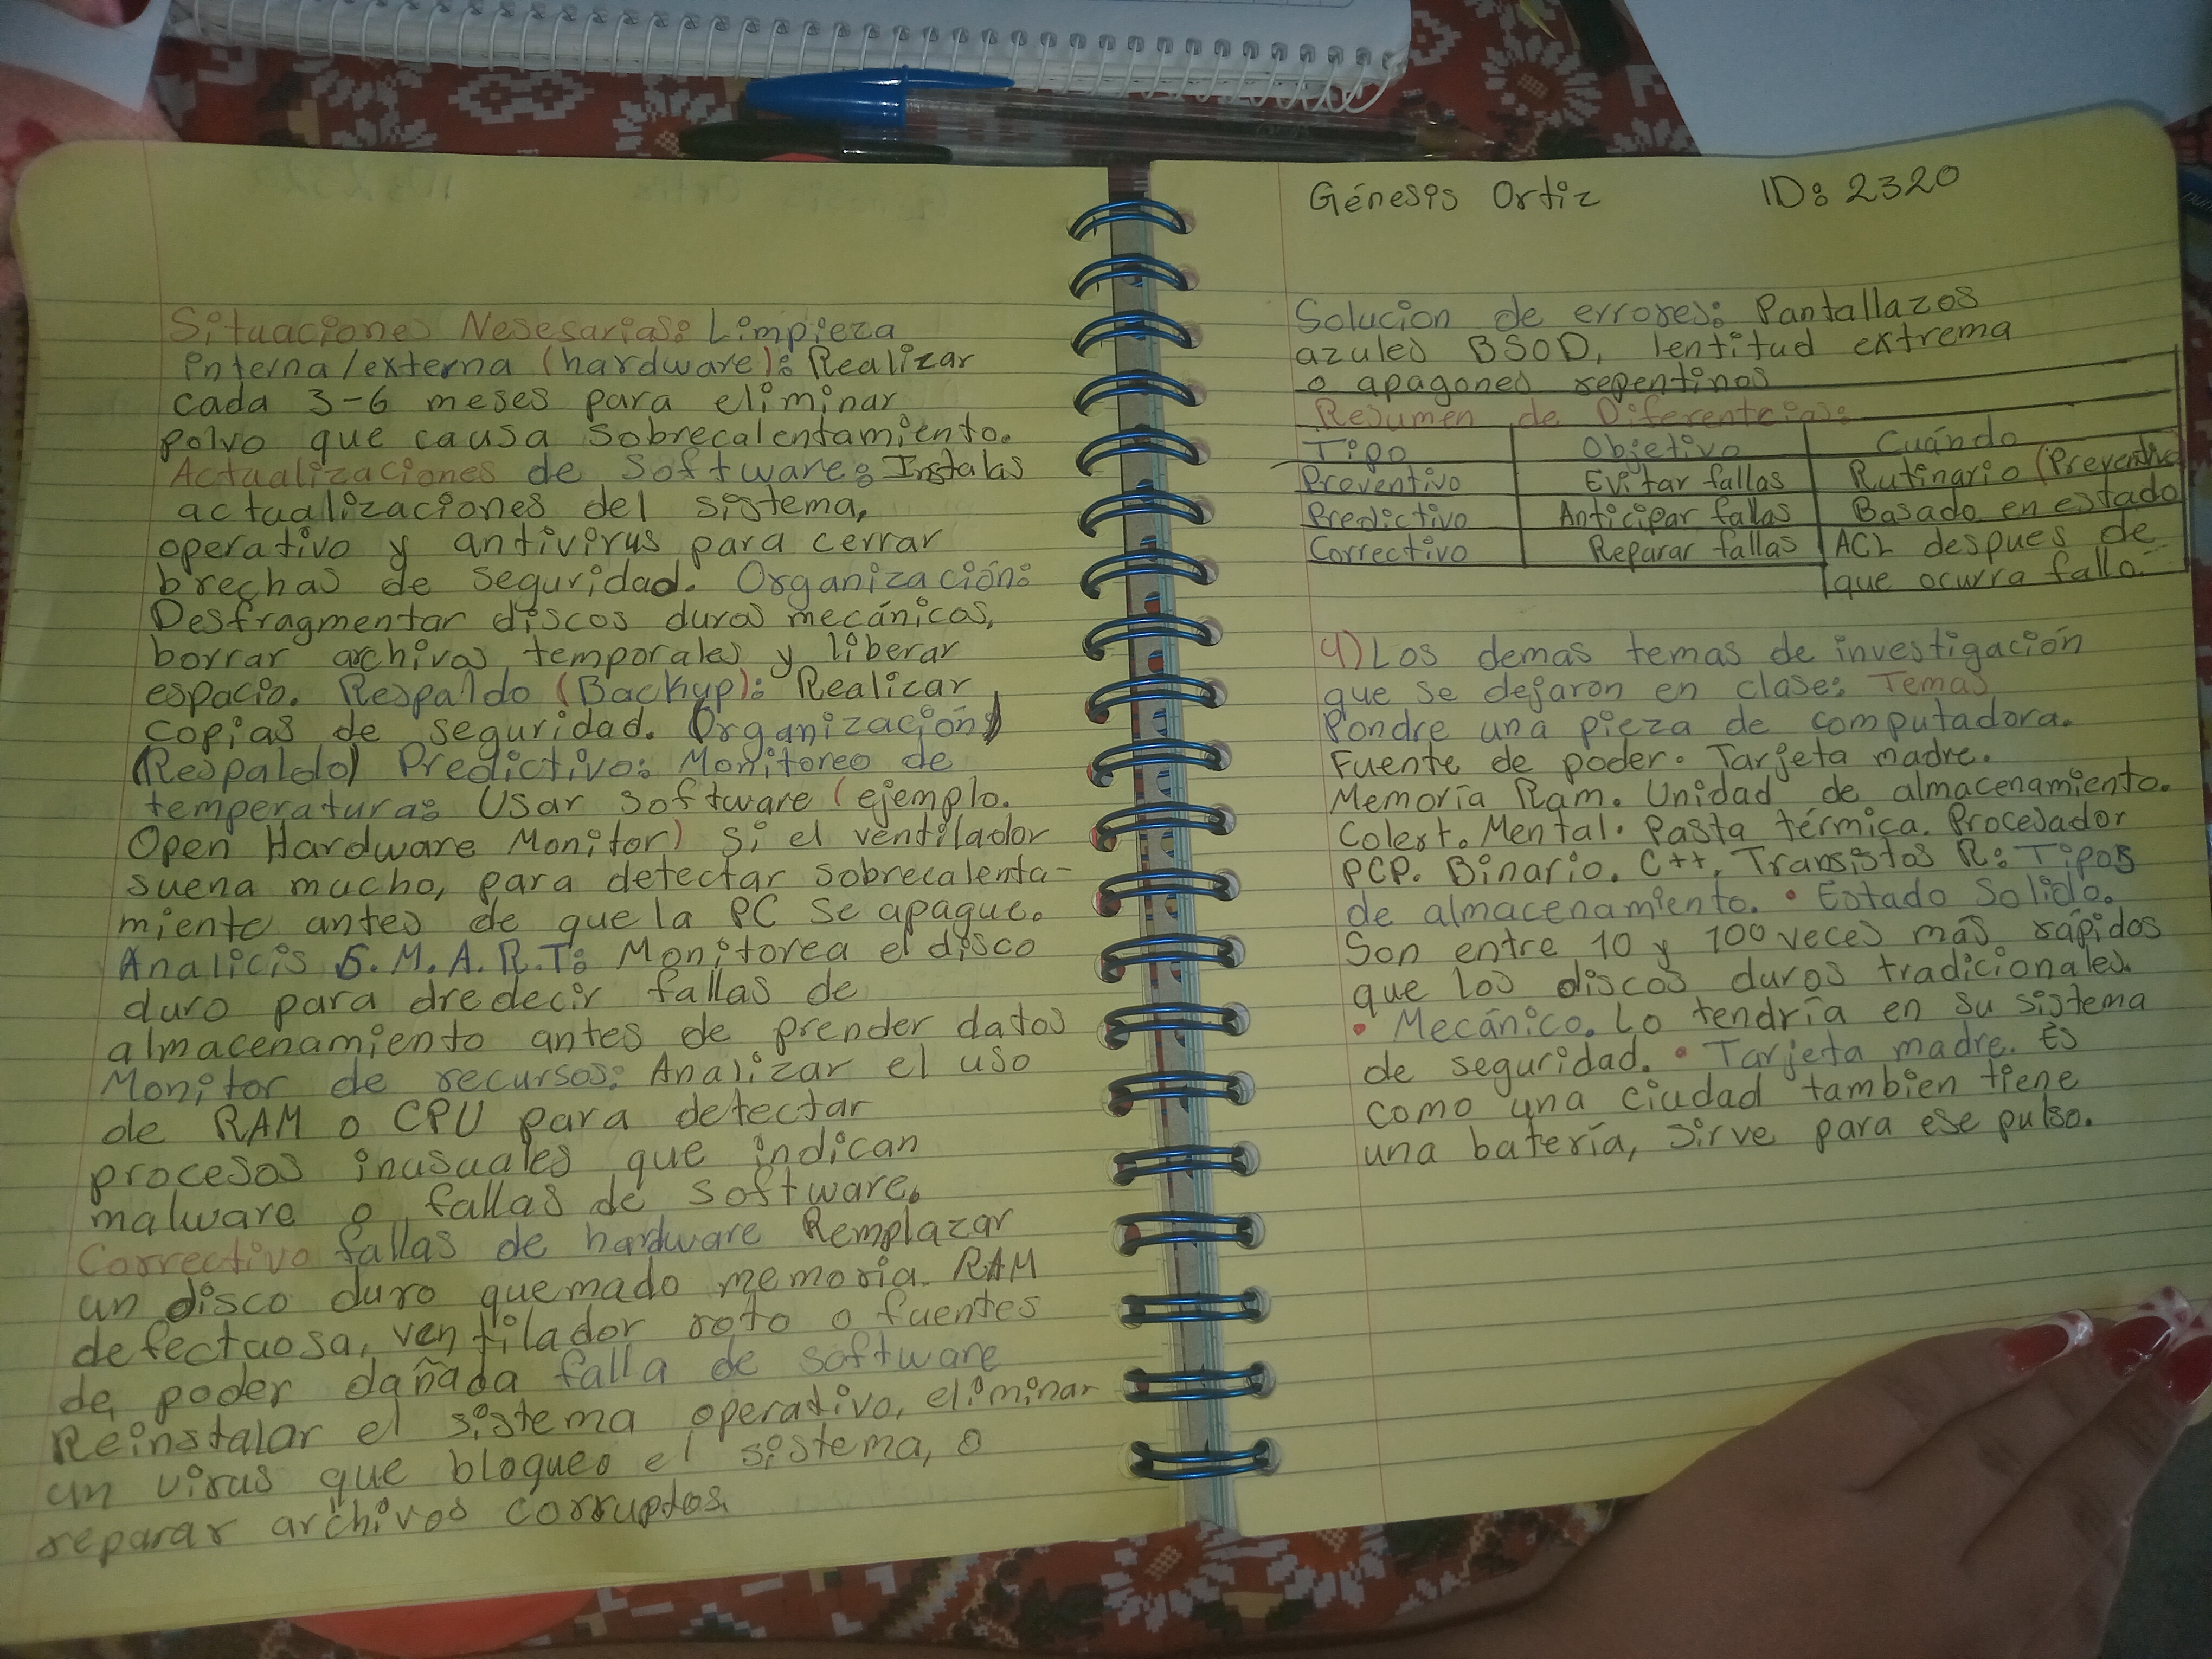 Situaciones Nesesarias: Limpieza
interna/externa (hardware): Realizar
cada 3-6 meses para eliminar
polvo que causa sobrecalentamiento.
Actualizaciones de Software: Instalas
actualizaciones del sistema,
operativo y antivirus para cerrar
brechas de seguridad. Organización:
Desfragmentar discos duros mecánicos,
borrar archivos temporales y liberar
espacio. Respaldo (Backup): Realizar
copias de seguridad. Organización)
(Respaldo) Predictivo: Monitoreo de
temperatura: Usar software (ejemplo.
Open Hardware Monitor) Si el ventilador
suena mucho, para detectar sobrecalenta-
miento antes de que la PC se apague.
Analicis S.M.A.R.T: Monitorea el disco
duro para dredecir fallas de
almacenamiento antes de prender datos
Monitor de recursos: Analizar el uso
de RAM o CPU para detectar
procesos inusuales que indican
malware o fallas de software.
Correctivo fallas de hardware Remplazar
un disco duro quemado memoria. RAM
defectuosa, ventilador roto o fuentes
de poder dañada falla de software
Reinstalar el sistema operativo, eliminar
un virus que bloqueo el sistema, o
reparar archivos corruptos.
Génesis Ortiz ID: 2320
Solucion de errores: Pantallazos
azules BSOD, lentitud extrema
o apagones repentinos
Resumen de Diferenteias:
Tipo Objetivo Cuándo
Preventivo Evitar fallas Rutinario (Preventivo
Predictivo Anticipar fallas Basado en estado
Correctivo Reparar fallas ACL despues de
que ocurra fallo.
4) Los demas temas de investigación
que se dejaron en clase: Temas
Pondre una pieza de computadora.
Fuente de poder. Tarjeta madre.
Memoria Ram. Unidad de almacenamiento.
Colert. Mental. Pasta térmica. Procesador
PCP. Binario. C++, Transistos R: Tipos
de almacenamiento. • Estado Solido.
Son entre 10 y 100 veces más rápidos
que los discos duros tradicionales.
• Mecánico. Lo tendría en su sistema
de seguridad. • Tarjeta madre. Es
como una ciudad tambien tiene
una batería, sirve para ese pulso.